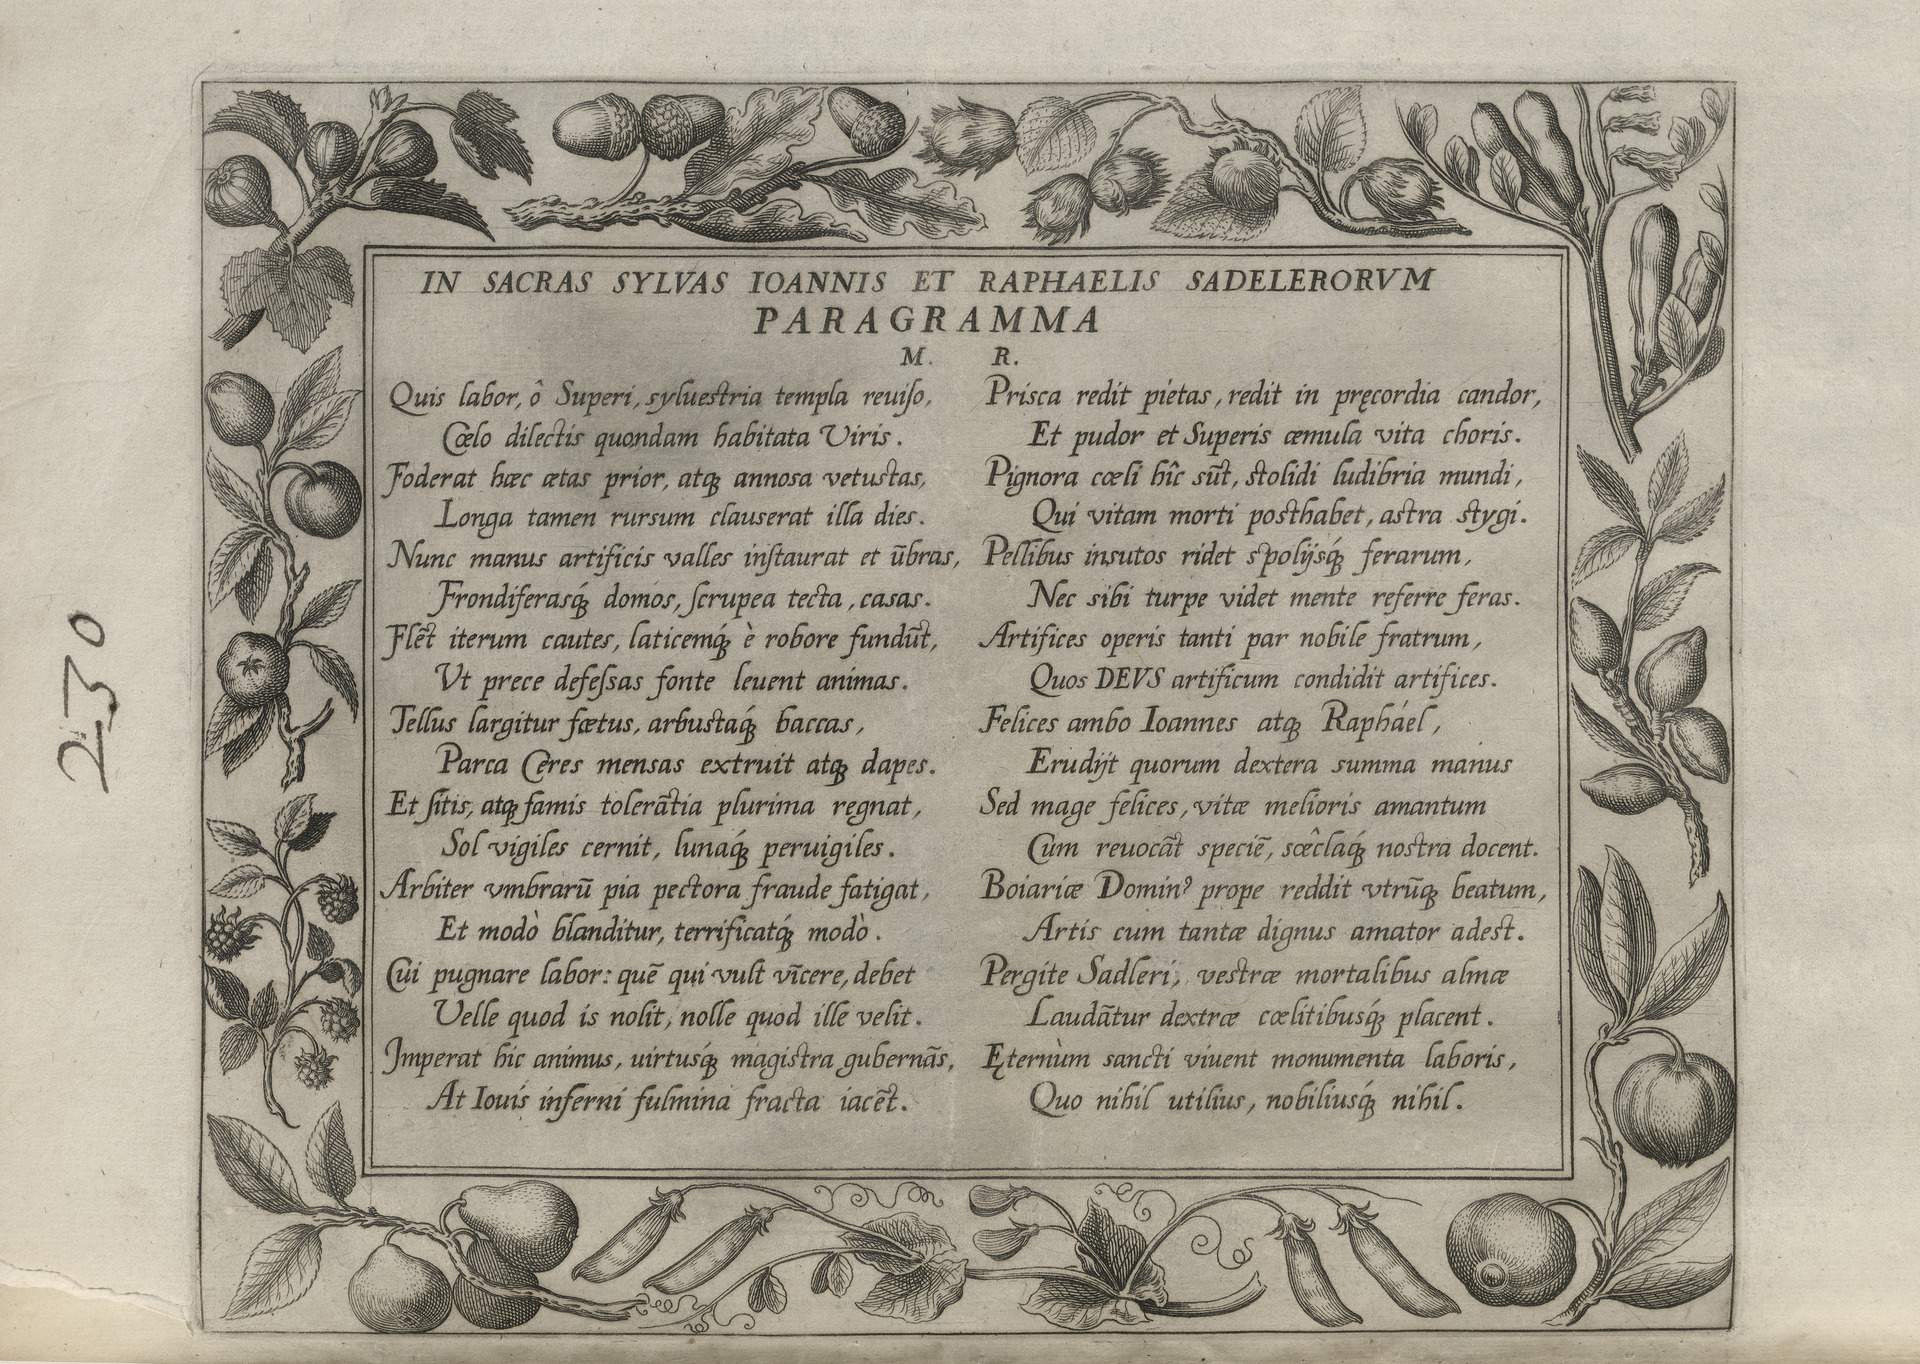 230
IN SACRAS SYLVAS IOANNIS ET RAPHAELIS SADELERORVM
PARAGRAMMA
M. R.
Quis labor, ô Superi, syluestria templa reuiso,
Cœlo dilectis quondam habitata Viris.
Foderat hæc ætas prior, atq́ annosa vetustas,
Longa tamen rursum clauserat illa dies.
Nunc manus artificis valles instaurat et ūbras,
Frondiferasq́ domos, scrupea tecta, casas.
Flēt iterum cautes, laticemq́ è robore fundūt,
Vt prece defessas fonte leuent animas.
Tellus largitur fœtus, arbustaq́ baccas,
Parca Ceres mensas extruit atq́ dapes.
Et sitis, atq́ famis tolerātia plurima regnat,
Sol vigiles cernit, lunaq́ peruigiles.
Arbiter vmbrarū pia pectora fraude fatigat,
Et modò blanditur, terrificatq́ modò.
Cui pugnare labor: quē qui vult vīcere, debet
Velle quod is nolit, nolle quod ille velit.
Imperat hic animus, uirtusq́ magistra gubernās,
At Iouis inferni fulmina fracta iacēt.
Prisca redit pietas, redit in pręcordia candor,
Et pudor et Superis æmula vita choris.
Pignora cœli hîc sūt, stolidi ludibria mundi,
Qui vitam morti posthabet, astra stygi.
Pellibus insutos ridet spolijsq́ ferarum,
Nec sibi turpe videt mente referre feras.
Artifices operis tanti par nobile fratrum,
Quos DEVS artificum condidit artifices.
Felices ambo Ioannes atq́ Rapháel,
Erudijt quorum dextera summa manus
Sed mage felices, vitæ melioris amantum
Cùm reuocāt speciē, sœ̂claq́ nostra docent.
Boiariæ Dominꝰ prope reddit vtrūq́ beatum,
Artis cum tantæ dignus amator adest.
Pergite Sadleri, vestræ mortalibus almæ
Laudātur dextræ cœlitibusq́ placent.
Ęternùm sancti viuent monumenta laboris,
Quo nihil utilius, nobiliusq́ nihil.